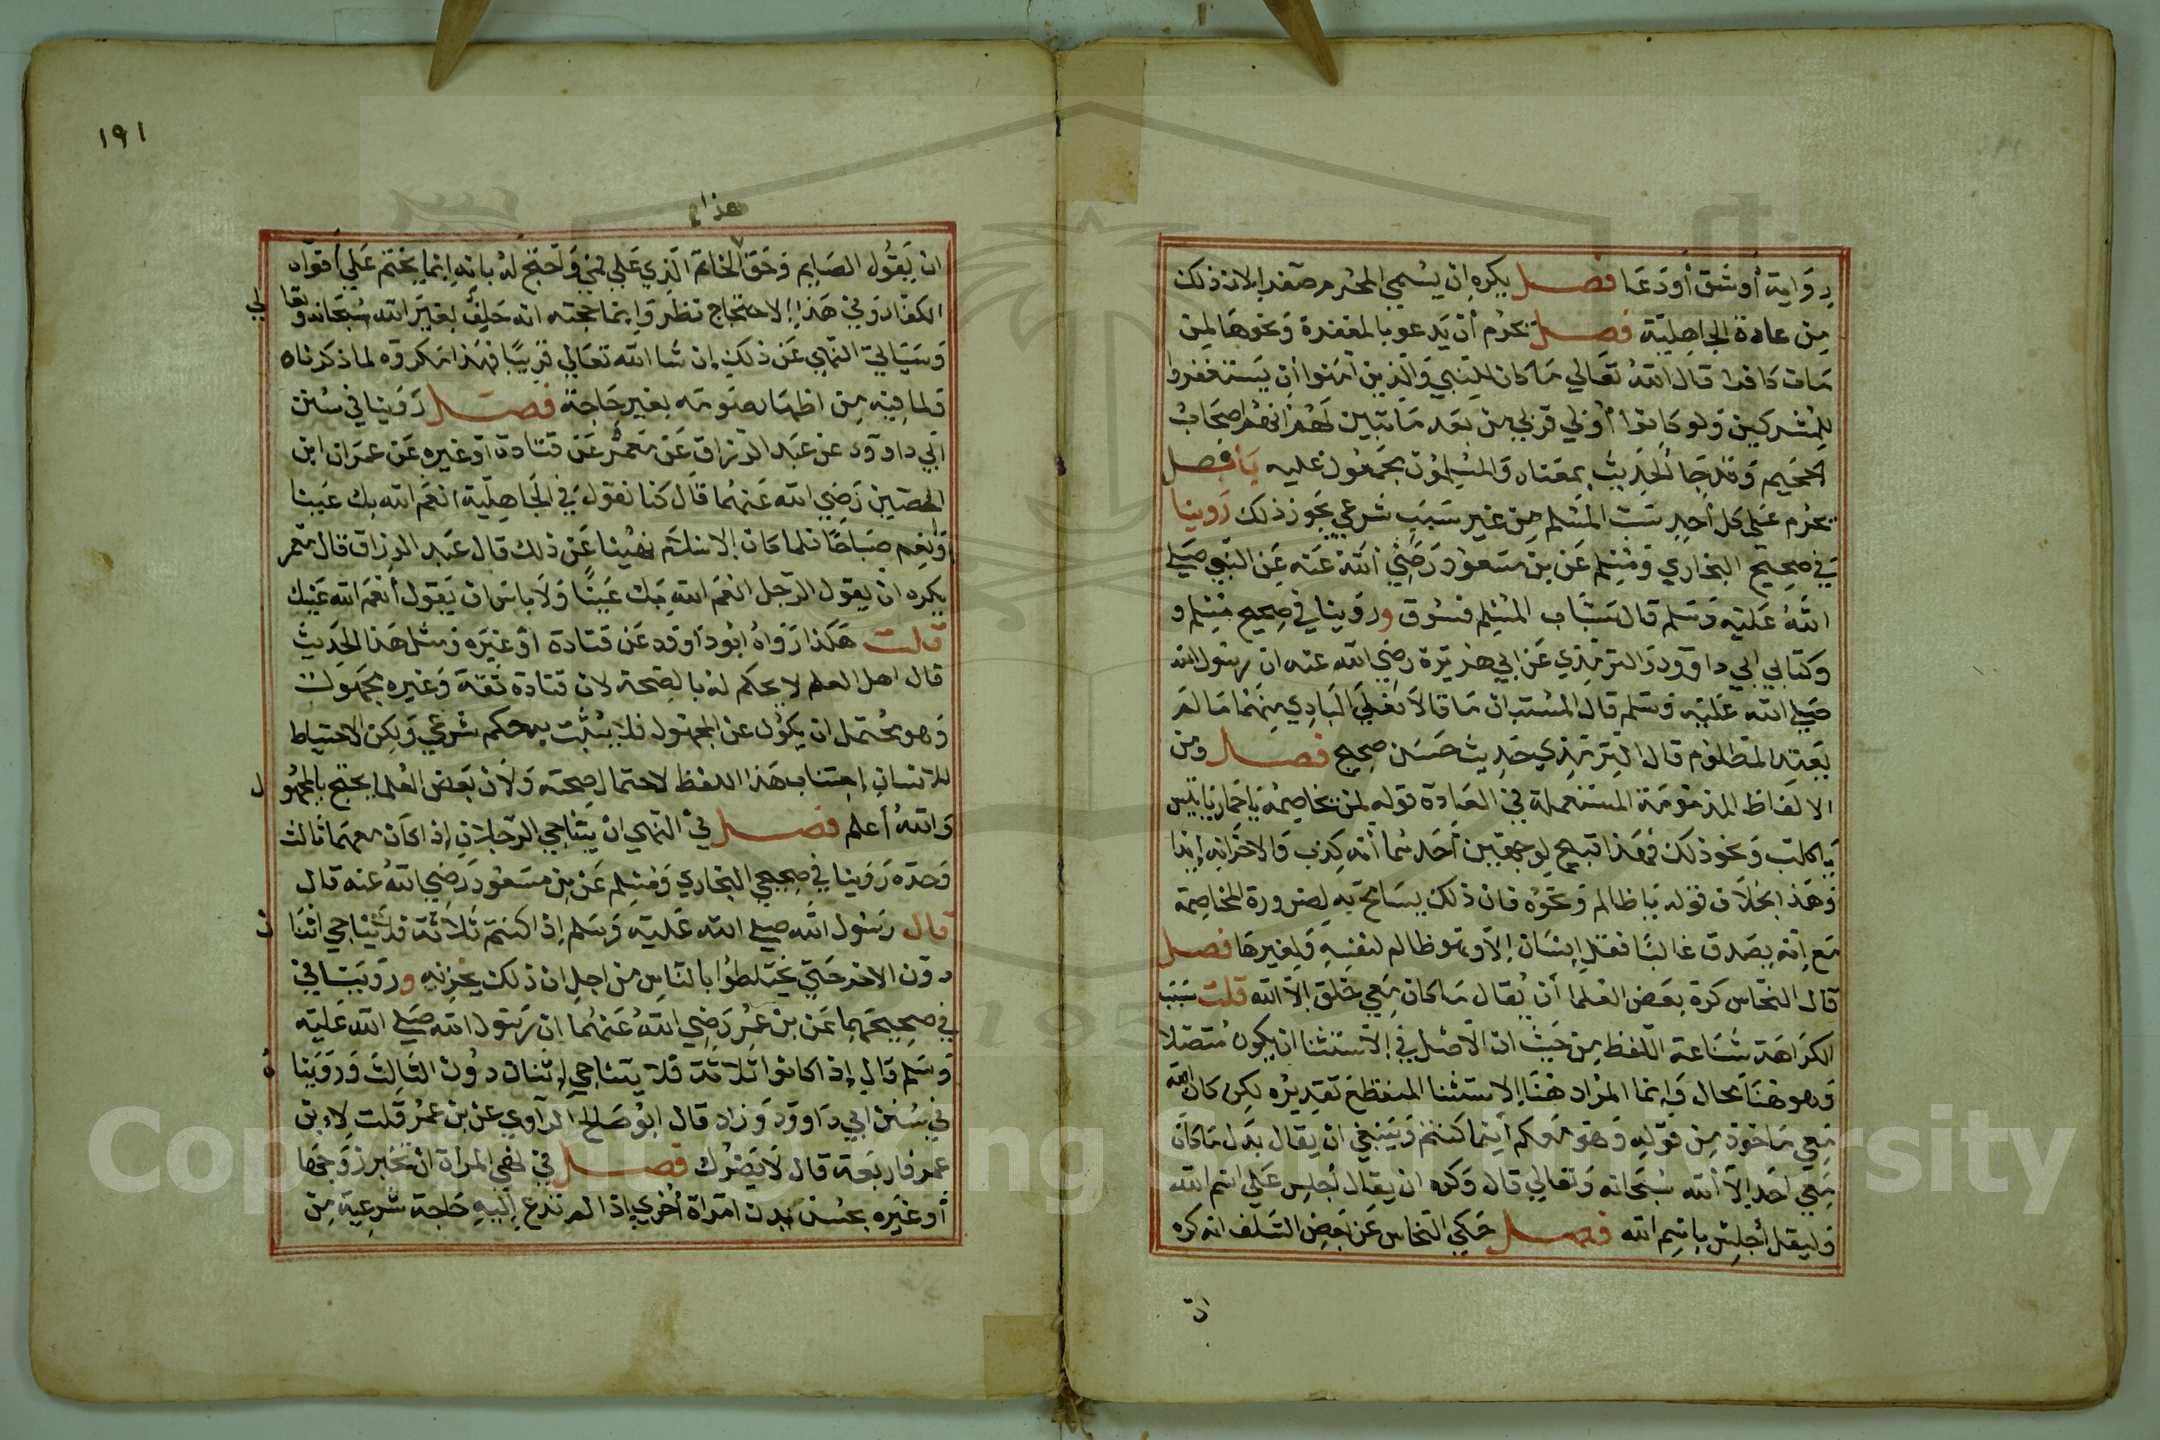 رواية أو شق أو دعا فصل يكره ان يسمي المحرم صفرا لان ذلك
من عادة الجاهلية فصل يحرم أن يدعو بالمغفرة ونحوها لمن
مات كافرا قال الله تعالي ما كان للنبي والذين آمنوا أن يستغفروا
للمشركين ولو كانوا أولي قربي من بعد ما تبين لهم انهم اصحاب
الجحيم وقد جا الحديث بمعناه والمسلمون مجمعون عليه فصل
يحرم علي كل أحد سب المسلم من غير سبب شرعي يجوز ذلك روينا
في صحيح البخاري ومسلم عن بن مسعود رضي الله عنه عن النبي صلي
الله عليه وسلم قال سباب المسلم فسوق وروينا في صحيح مسلم و
وكتابي ابي داوود والترمذي عن ابي هريرة رضي الله عنه ان رسول الله
صلي الله عليه وسلم قال المستبان ما قالا فعلي البادي منهما ما لم
يعتد المظلوم قال الترمذي حديث حسن صحيح فصل ومن
الالفاظ المذمومة المستعملة في العادة قوله لمن يخاصمه يا حمار يا تيس
يا كلب ونحو ذلك فهذا قبيح لوجهين أحدهما أنه كذب والاخر أنه إيذا
وهذا بخلاف قوله يا ظالم ونحوه فان ذلك يسامح به لضرورة المخاصمة
مع انه يصدق غالبا فقل إنسان إلا وهو ظالم لنفسه ولغيرها فصل
قال النحاس كره بعض العلما أن يقال ما كان معي خلق إلا الله قلت سبب
الكراهة شناعة اللفظ من حيث ان الاصل في الاستثنا ان يكون متصلا
وهو هنا محال وإنما المراد هنا الاستثنا المنقطع تقديره لكن كان الله
معي ماخوذ من قوله وهو معكم أينما كنتم وينبغي ان يقال بدل ما كان
معي احد إلا الله سبحانه وتعالي قال وكره ان يقال أجلس علي اسم الله
وليقل أجلس باسم الله فصل حكي النحاس عن بعض السلف انه كره
ان
١٩١
هذا
ان يقول الصايم وحق الخاتم الذي علي فمي واحتج له بانه إنما يختم علي أفواه
الكفار وفي هذا الاحتجاج نظر وإنما حجته انه حلف بغير الله سبحانه وتعا لي
وسياتي النهي عن ذلك إن شا الله تعالي قريبا فهذا مكروه لما ذكرناه
ولما فيه من اظهار صومه بغير حاجة فصل روينا في سنن
أبي داوود عن عبد الرزاق عن معمر عن قتادة أو غيره عن عمران ابن
الحصين رضي الله عنهما قال كنا نقول في الجاهلية انعم الله بك عينا
وانعم صباحا فلما كان الاسلام نهينا عن ذلك قال عبد الرزاق قال معمر
يكره ان يقول الرجل انعم الله بك عينا ولا باس ان يقول أنعم الله عينك
قلت هكذا رواه ابو داوود عن قتادة أو غيره ومثل هذا الحديث
قال اهل العلم لا يحكم له بالصحة لان قتادة ثقة وغيره مجهول
وهو محتمل ان يكون عن المجهول فلا يثبت به حكم شرعي ولكن الاحتياط
للانسان إجتناب هذا اللفظ لاحتمال صحته ولان بعض العلما يحتج بالمجهو ل
والله أعلم فصل في النهي ان يتناجي الرجلان إذا كان معهما ثالث
وحده روينا في صحيحي البخاري ومسلم عن بن مسعود رضي الله عنه قال
قال رسول الله صلي الله عليه وسلم إذا كنتم ثلاثة فلا يتناجي اثنا ن
دون الاخر حتي يختلطوا بالناس من اجل ان ذلك يحزنه وروينا في
في صحيحيهما عن بن عمر رضي الله عنهما ان رسول الله صلي الله عليه
وسلم قال إذا كانوا ثلاثة فلا يتناجي إثنان دون الثالث وروينا ه
في سنن ابي داوود وزاد قال ابو صالح الراوي عن بن عمر قلت لابن
عمر فاربعة قال لا يضرك فصل في نهي المراة ان تخبر زوجها
أو غيره بحسن بدن امراة أخري إذا لم تدع إليه حاجة شرعية من
Copyright © King Saud University
1957